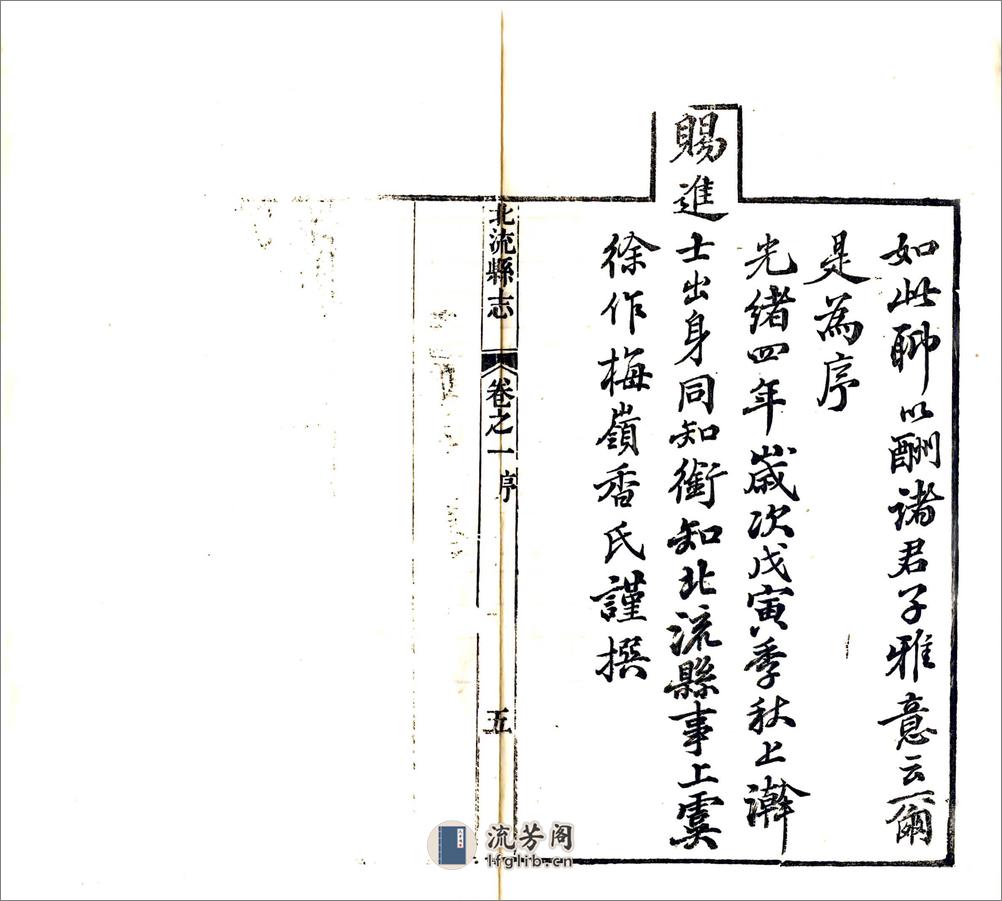 如此聊以酬諸君子雅意云爾
是為序
光緒四年歲次戊寅季秋上澣
賜進士出身同知銜知北流縣事上虞
徐作梅嶺香氏謹撰
北流縣志 卷之一 序 五
流芳阁
lfglib.cn